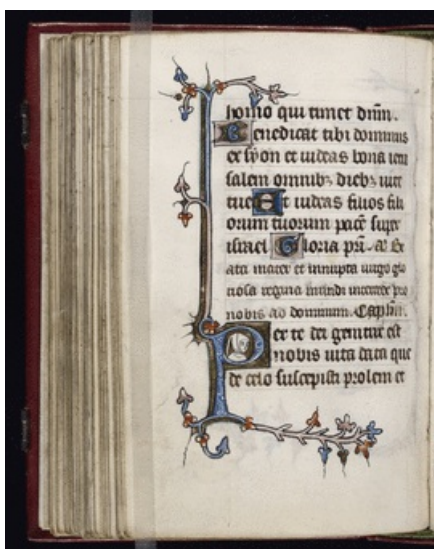 homo qui timet dn̄m.
Benedicat tibi dominus
ex syon et uideas bona ieru
salem omnibꝫ diebꝫ uite
tue Et uideas filios fili
orum tuorum pacē super
israel Gloria pr̄i. a. Be
ata mater et innupta uirgo glo
riosa regina mundi intercede pro
nobis ad dominum. Caplm̄.
Per te dei genitrix est
nobis uita data que
de celo suscepisti prolem et